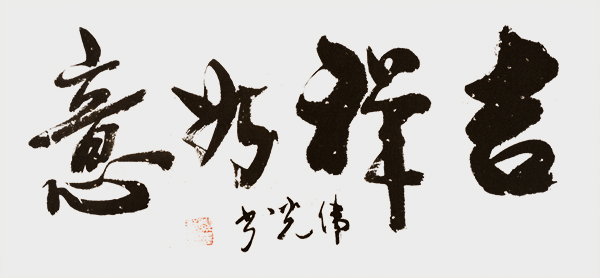 吉祥如意
伟光书